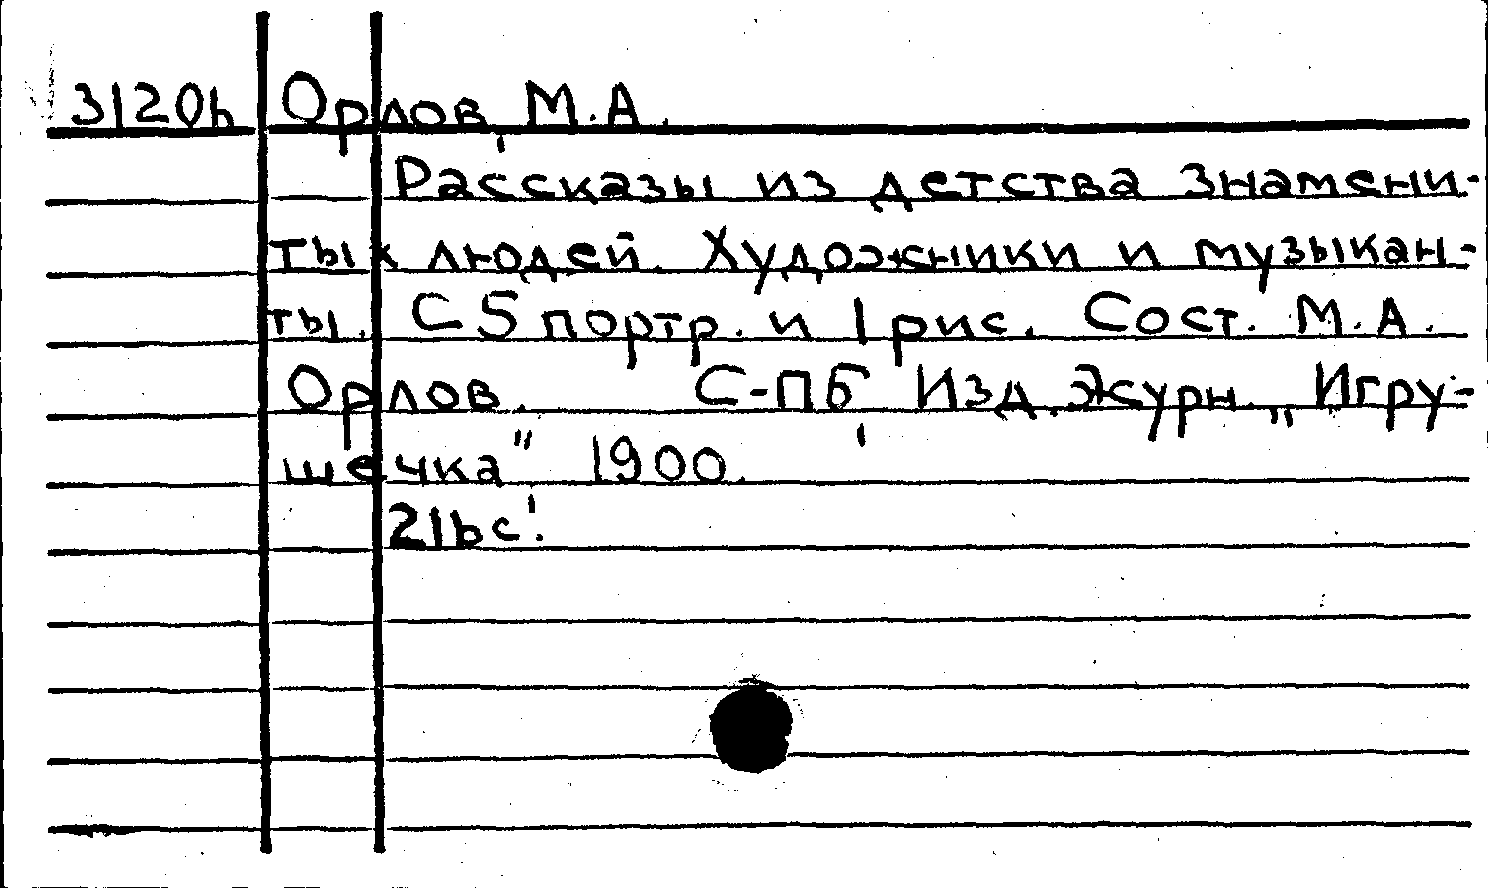 3120h Орлов, М.А.
Рассказы из детства знамени-
тых людей. Художники и музыкан-
ты. С 5 портр. и 1 рис. Сост. М.А.
Орлов. С-ПБ, Изд. журн. „Игру-
шечка", 1900.
216 с.